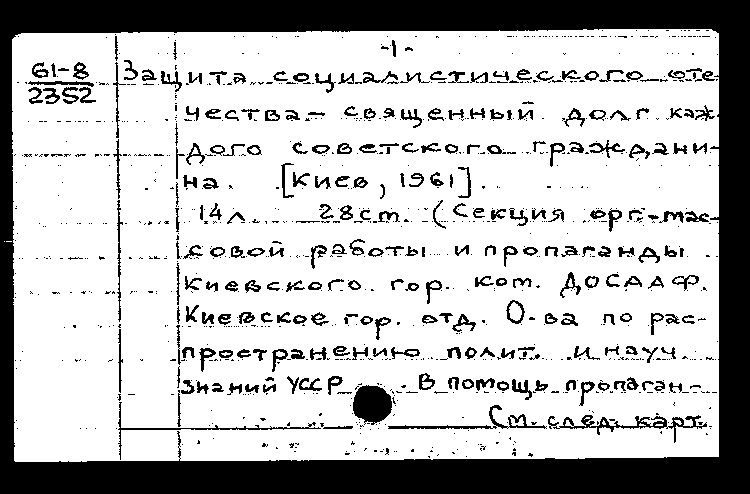 -1-
61-8
2352
Защита социалистического оте-
чества - священный долг каж-
дого советского граждани-
на. [Киев, 1961].
14 л. 28 cm. (Секция орг.-мас-
совой работы и пропаганды
Киевского гор. ком. ДОСААФ.
Киевское гор. отд. О-ва по рас-
пространению полит. и науч.
знаний УССР. В помощь пропаган-
См. след. карт.